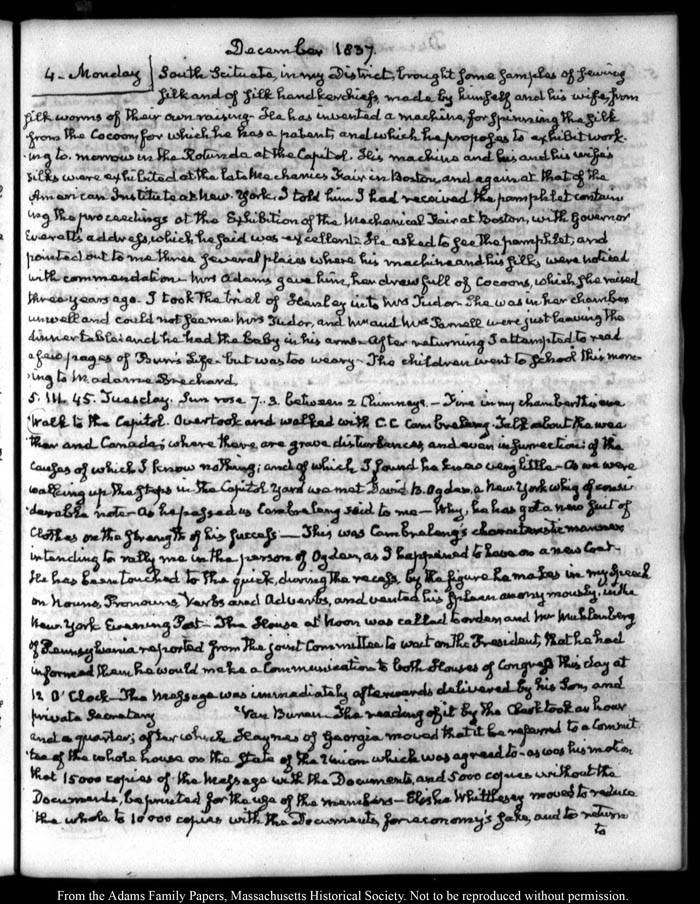 December 1837.
4- Monday South Scituate, in my District, brought some samples of sewing
silk and of silk handkerchiefs, made by himself and his wife, from
silk worms of their own raising- He has invented a machine, for spinning the silk
from the Cocoon, for which he has a patent, and which he proposes to exhibit work-
-ing to-morrow in the Rotunda at the Capitol. His machine and his and his wife's
silks were exhibited at the late Mechanics Fair in Boston, and again at that of the
American Institute at New-York. I told him I had received the pamphlet contain-
ing the proceedings at the Exhibition of the Mechanical Fair at Boston, with Governor
Everett's address, which he said was excellent- He asked to see the pamphlet, and
pointed out to me three several places where his machine and his silks were noticed
with commendation- Mrs Adams gave him, her draw full of Cocoons, which she raised
three years ago. I took the trial of to Mrs Tudor- She was in her chamber
unwell and could not see me Mrs Tudor, and Mr and Mrs Parnell were just leaving the
dinner table: and he had the baby in his arms- After returning I attempted to read
a few pages of Burr's Life- but was too weary- The children went to school this morn-
-ing to Madame Brechard.
5. III. 45. Tuesday. Sun rose 7..3. between 2 Chimneys.- Fire in my chamber this eve
Walk to the Capitol. Overtook and walked with C. C. Cambreleng. Talk about the wea-
ther and Canada; where there are grave disturbances and even insurrection: of the
causes of which I know nothing; and of which I found he knew very little- As we were
walking up the steps in the Capitol Yard we met David B. Ogden, a New York whig of consi-
derable note- As he passed us Cambreleng said to me- Why, he has got a new suit of
Clothes on the strength of his success- This was Cambreleng's characteristic manner
intending to rally me in the person of Ogden, as I happened to have on a new Coat-
He has been touched to the quick, during the recess, by the figure he makes in my speech
on Nouns, Pronouns Verbs and Adverbs, and vented his spleen anonymously, in the
New York Evening Post- The House at Noon was called to order, and Mr Muhlenberg
of Pennsylvania reported from the joint Committee to wait on the President, that he had
informed them he would make a Communication to both Houses of Congress this day at
12 O'Clock- The Message was immediately afterwards delivered by his Son, and
private Secretary Van Buren- The reading of it by the Clerk took an hour
and a quarter; after which Haynes of Georgia moved that it be referred to a Commit-
tee of the whole house on the State of the Union which was agreed to- as was his motion
that 15000 copies of the Message with the Documents, and 5000 copies without the
Documents, be printed for the use of the members- Elisha Whittlesey moved to reduce
the whole to 10000 copies with the Documents, for economy's sake, and to return
to
From the Adams Family Papers, Massachusetts Historical Society. Not to be reproduced without permission.